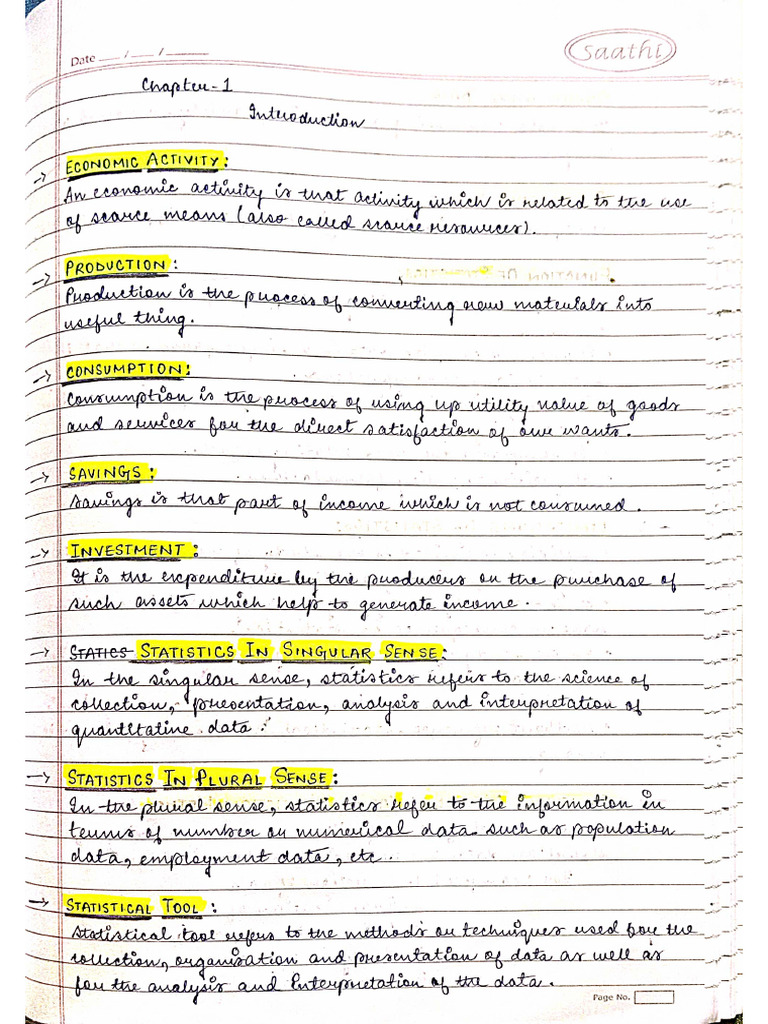 Date __/__/____
saathi
Chapter-1
Introduction
→ ECONOMIC ACTIVITY:
An economic activity is that activity which is related to the use
of scarce means (also called scarce resources).
→ PRODUCTION:
Production is the process of converting raw materials into
useful thing.
→ CONSUMPTION:
Consumption is the process of using up utility value of goods
and services for the direct satisfaction of our wants.
→ SAVINGS:
Savings is that part of income which is not consumed.
→ INVESTMENT:
It is the expenditure by the producers on the purchase of
such assets which help to generate income.
→ STATICS STATISTICS IN SINGULAR SENSE:
In the singular sense, statistics refers to the science of
collection, presentation, analysis and interpretation of
quantitative data.
→ STATISTICS IN PLURAL SENSE:
In the plural sense, statistics refer to the information in
terms of number or numerical data such as population
data, employment data, etc.
→ STATISTICAL TOOL:
Statistical tool refers to the methods or techniques used for the
collection, organisation and presentation of data as well as
for the analysis and Interpretation of the data.
Page No.